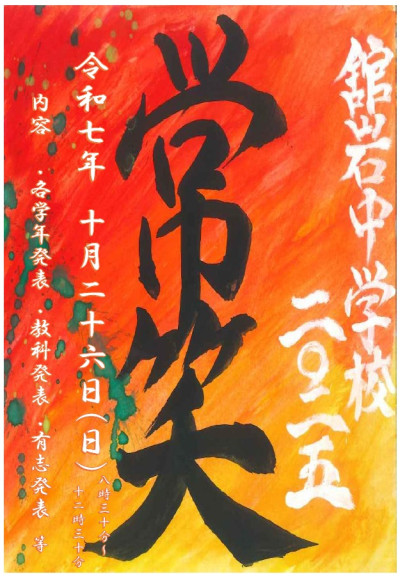 舘岩中学校
二〇二五
常笑
令和七年 十月二十六日(日)
八時三十分～
十二時三十分
内容 ・各学年発表 ・教科発表 ・有志発表 等